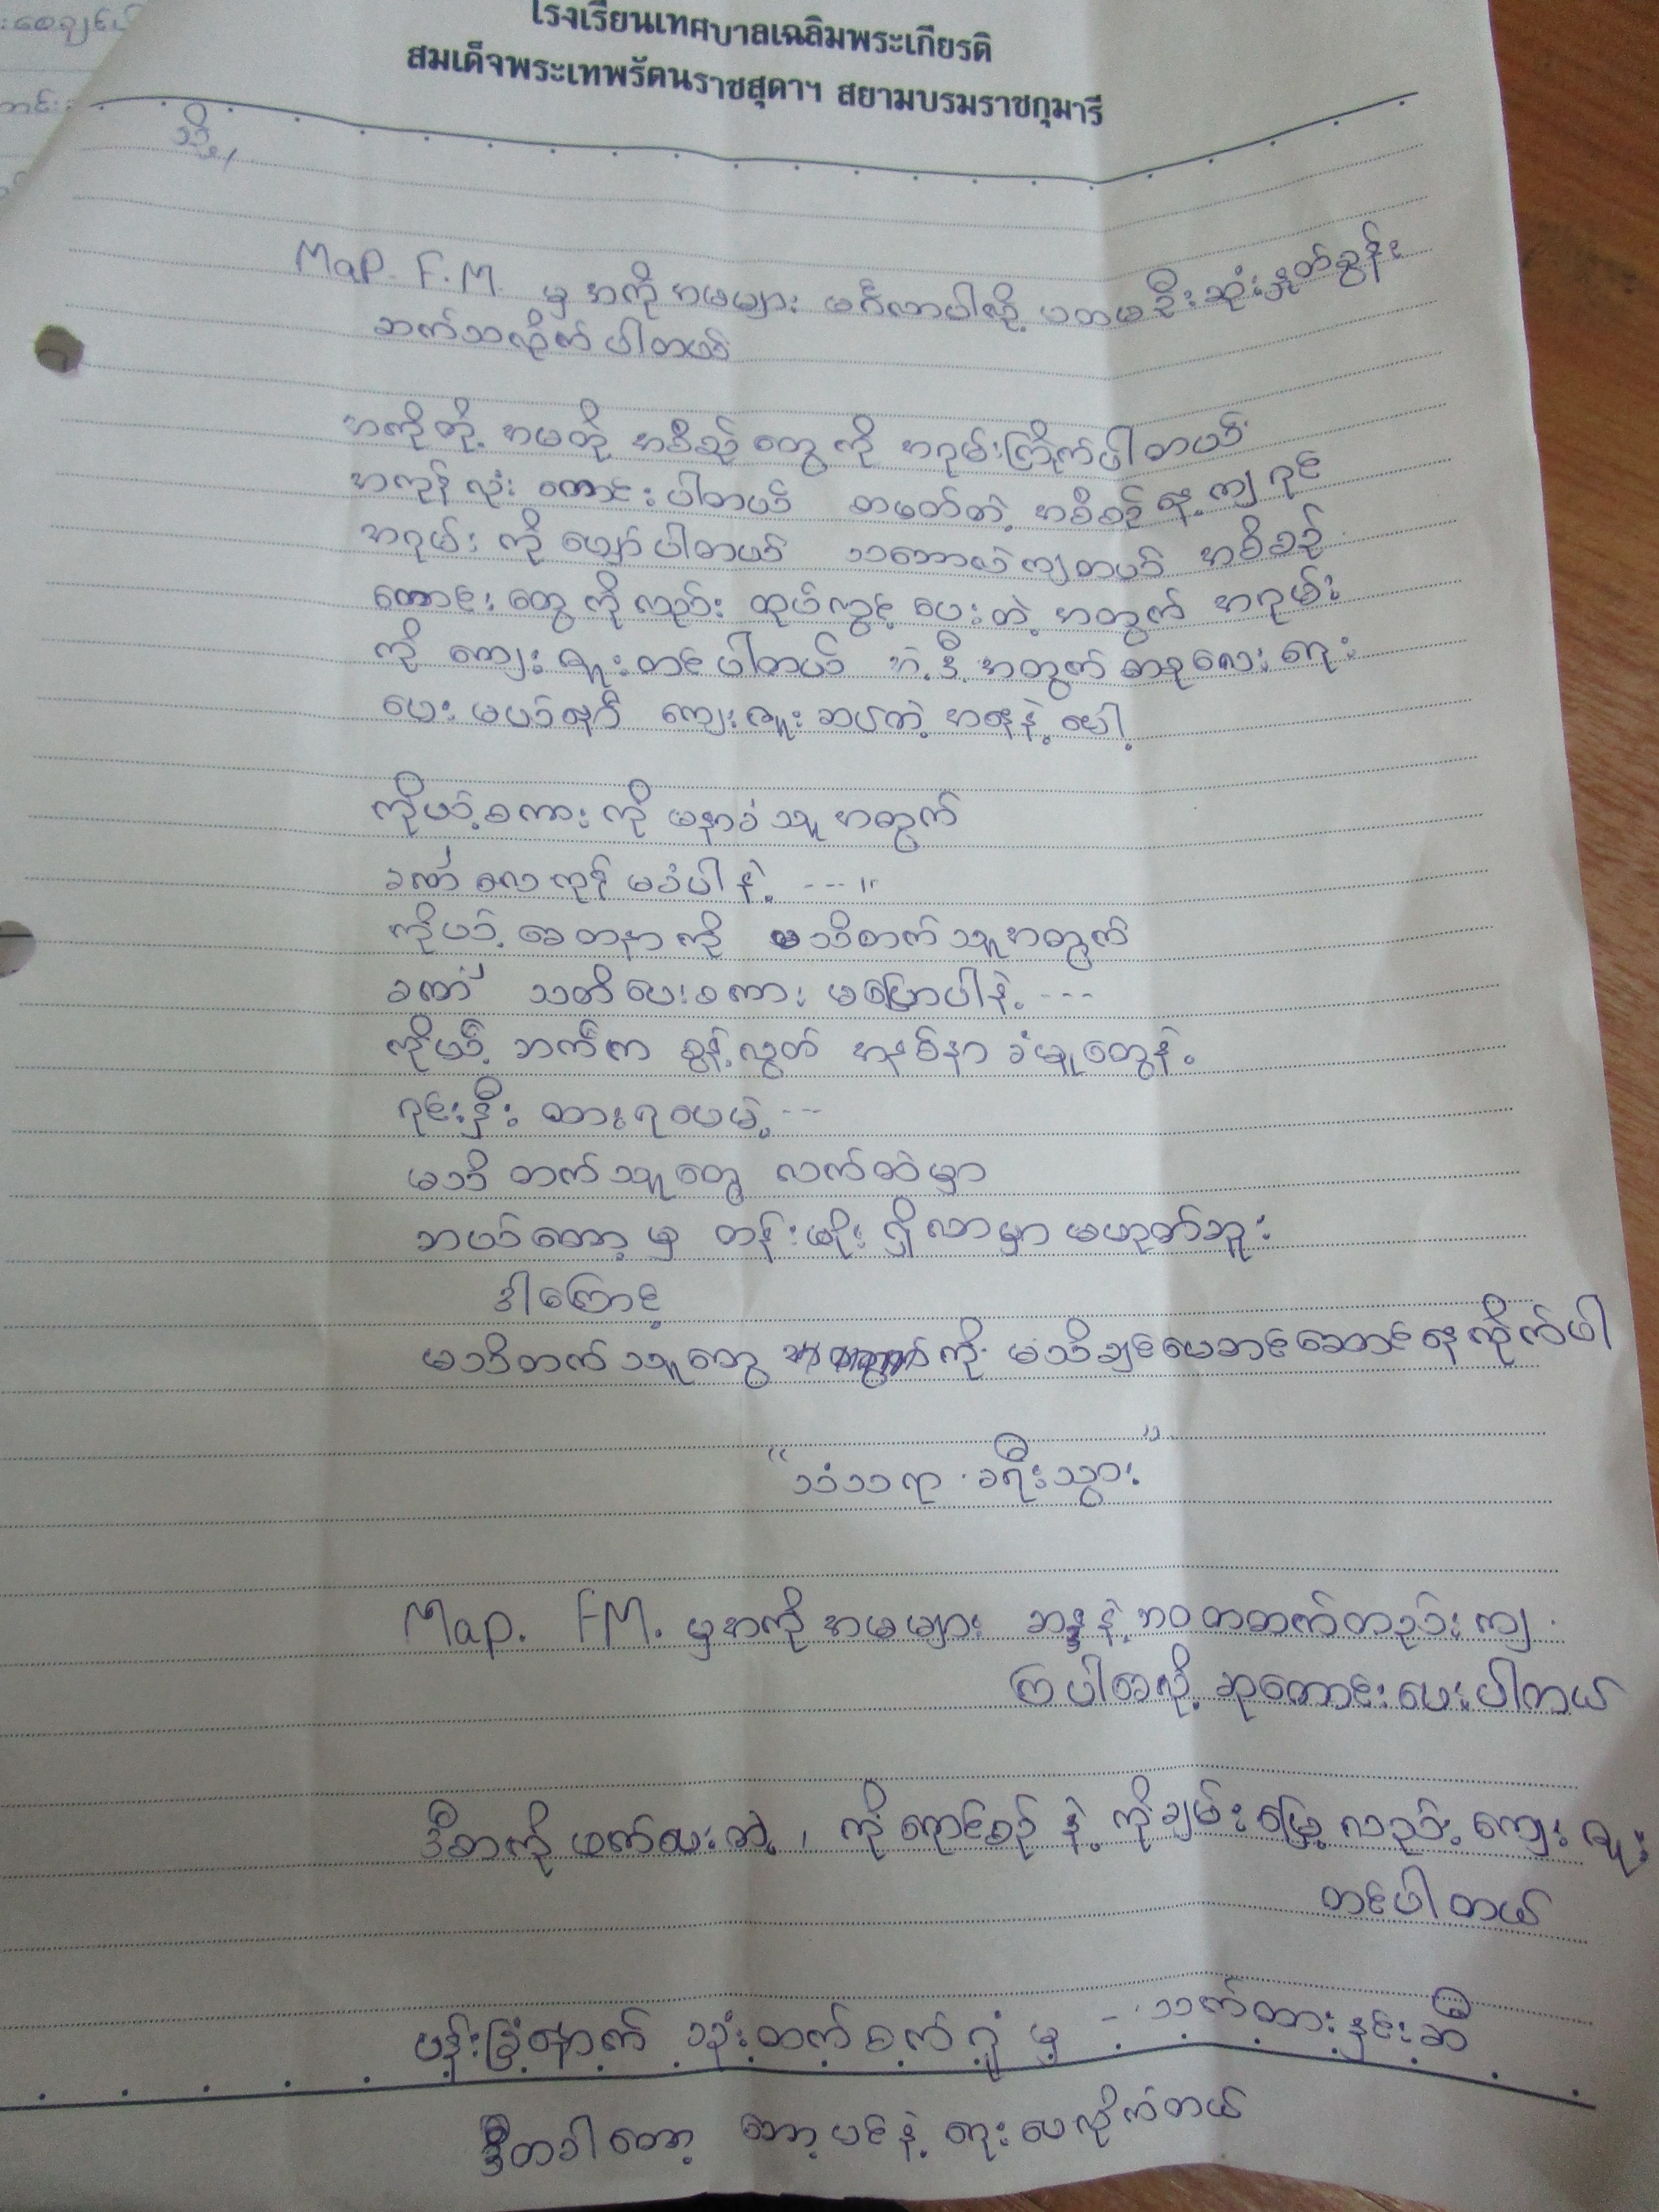 โรงเรียนเทศบาลเฉลิมพระเกียรติ
สมเด็จพระเทพรัตนราชสุดาฯ สยามบรมราชกุมารี
သို့/
Map. F.M. မှ အကိုအမများ မင်္ဂလာပါလို့ ပထမဦးဆုံးနှုတ်ခွန်း
ဆက်သလိုက်ပါတယ်
အကိုတို့ အမတို့ အစီစဉ်တွေကို အရမ်းကြိုက်ပါတယ်
အကုန်လုံး ကောင်းပါတယ် တမတ်တဲ့ အစီစဉ်နေ့ကျရင်
အရမ်းကို ပျော်ပါတယ် သဘောလဲကျတယ် အစီစဉ်
ကောင်းတွေကိုလည်း ထုပ်လွှင့်ပေးတဲ့အတွက် အရမ်း
ကို ကျေးဇူးတင်ပါတယ် အဲ့ဒီ့အတွက် စာစုလေးရေး
ပေးမယ်နော် ကျေးဇူးဆပ်တဲ့ အနေနဲ့ပေါ့
ကိုယ့်စကားကို မနာခံသူအတွက်
ခဏလေကုန်မခံပါနဲ့ ---"
ကိုယ့်စေတနာကို မသိတက်သူအတွက်
ခဏ သတိပေးစကား မပြောပါနဲ့ ---
ကိုယ့်ဘက်က စွန့်လွတ် အနစ်နာခံမှုတွေနဲ့
ရင်းနှီးထားရပေမဲ့ ---
မသိတက်သူတွေ လက်ထဲမှာ
ဘယ်တော့မှ တန်းဖိုးရှိလာမှာမဟုတ်ဘူး
ဒါကြောင့်
မသိတက်သူတွေ ကို မသိချင်ယောင်ဆောင်နေလိုက်ပါ
"သံသရာ ခရီးသွား"
Map. FM. မှအကိုအမများ ဆန္ဒနဲ့ဘဝတထက်တည်းကျ
ကြပါစေလို့ ဆုတောင်းပေးပါတယ်
ဒီစာကိုဖတ်ပေးတဲ့, ကိုရောင်စဉ်နဲ့ ကိုချမ်းမြေ့လည်း ကျေးဇူး
တင်ပါတယ်
ပန်းခြံနောက် သုံးထက်စက်ရုံမှ - သက်ထားနှင်းဆီ
ဒီတခါတော့ ဘောပင်နဲ့ ရေးပေလိုက်တယ်